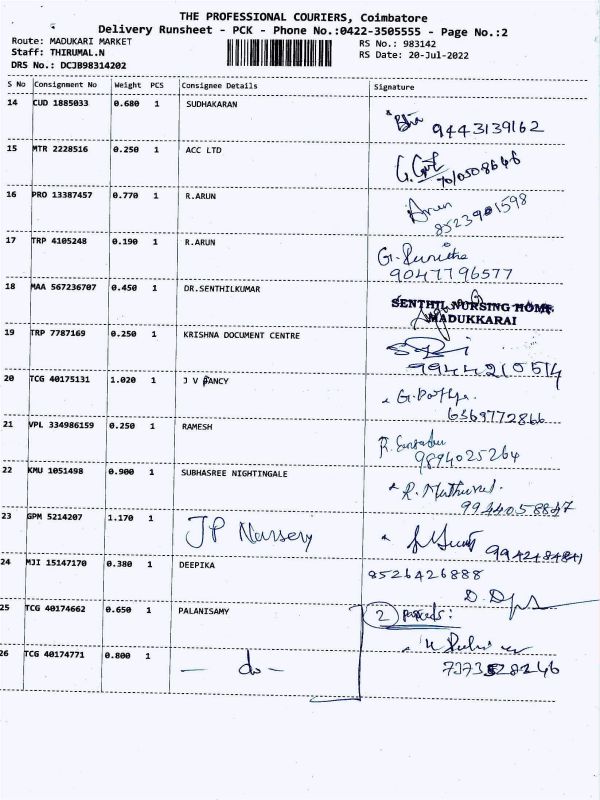 THE PROFESSIONAL COURIERS, Coimbatore
Delivery Runsheet - PCK - Phone No.:0422-3505555 - Page No.:2
Route: MADUKARI MARKET
RS No.: 983142
Staff: THIRUMAL.N
RS Date: 20-Jul-2022
DRS No.: DCJB98314202
S No Consignment No Weight PCS Consignee Details Signature
14 CUD 1885033 0.680 1 SUDHAKARAN
9443139162
15 MTR 2228516 0.250 1 ACC LTD
7010508646
16 PRO 13387457 0.770 1 R.ARUN Arun
8523901598
17 TRP 4105248 0.190 1 R.ARUN G. Sunitha
9047796577
18 MAA 567236707 0.450 1 DR.SENTHILKUMAR
SENTHIL NURSING HOME
MADUKKARAI
19 TRP 7787169 0.250 1 KRISHNA DOCUMENT CENTRE
9944210514
20 TCG 40175131 1.020 1 J V FANCY
6369772866
21 VPL 334986159 0.250 1 RAMESH
9894025264
22 KMU 1051498 0.900 1 SUBHASREE NIGHTINGALE
23 GPM 5214207 1.170 1 JP Nursery
24 MJI 15147170 0.380 1 DEEPIKA 8526426888
25 TCG 40174662 0.650 1 PALANISAMY 2
26 TCG 40174771 0.800 1 — do —